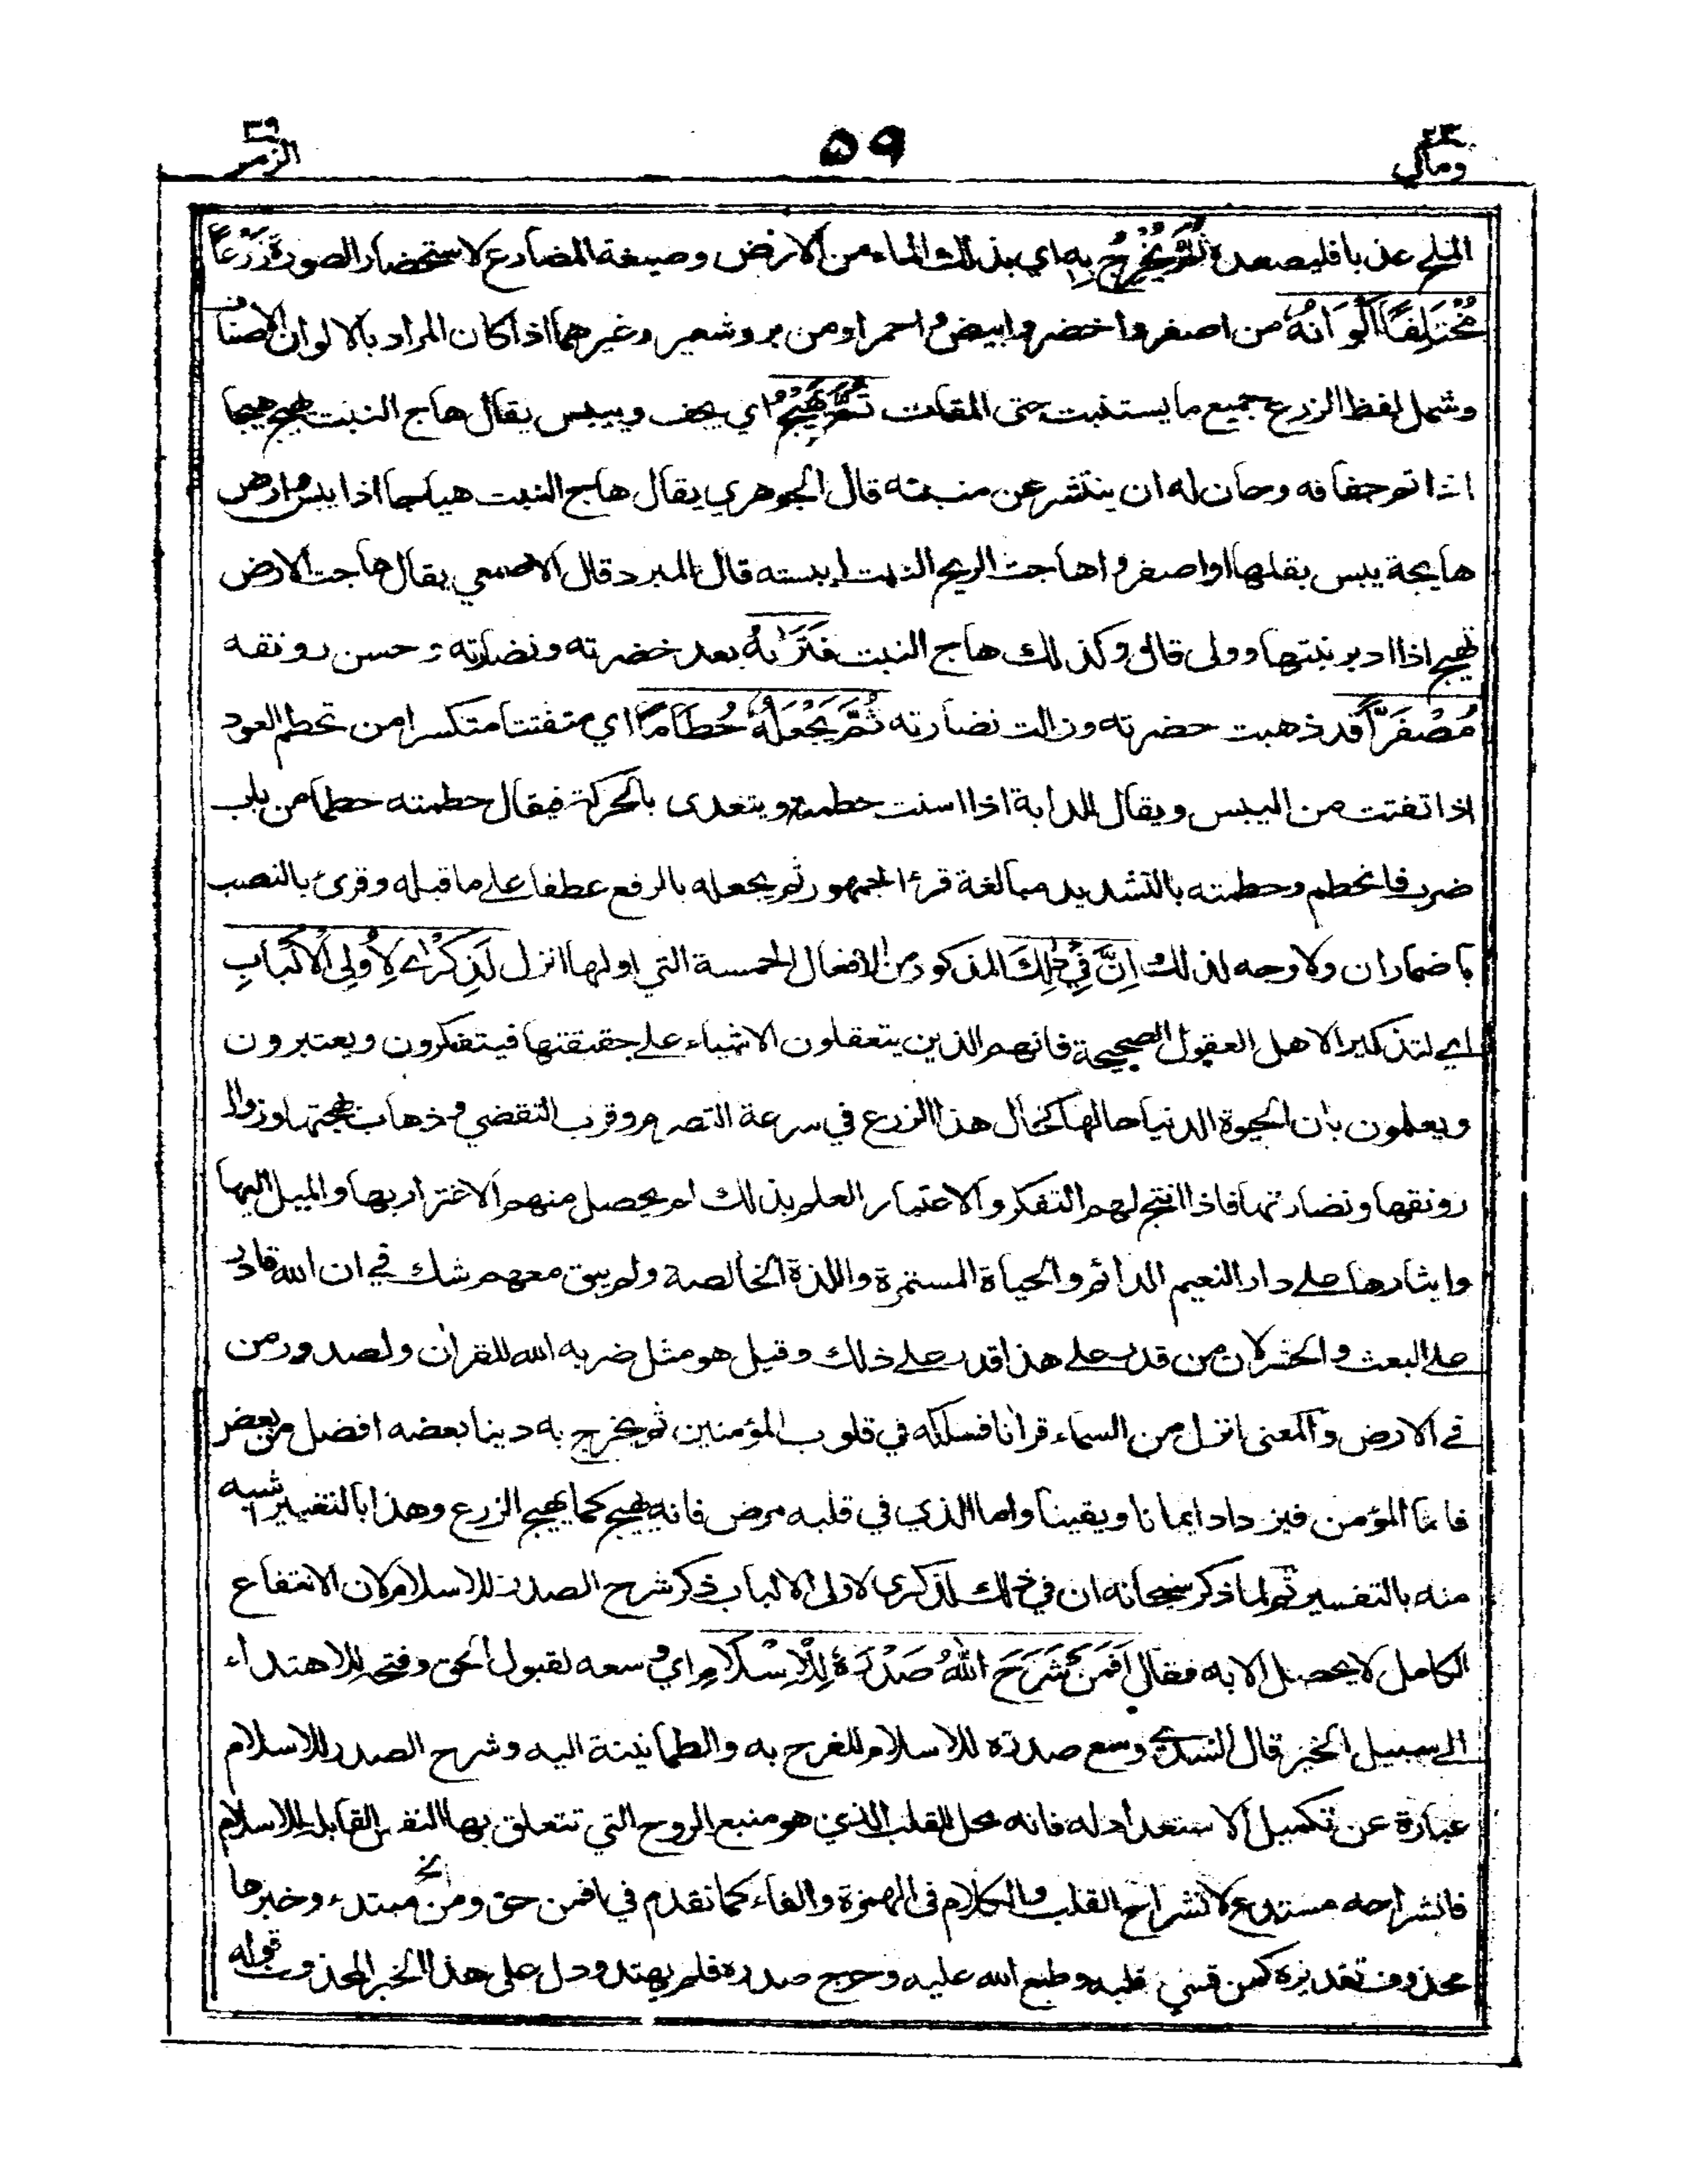 ٢٣
ومالي
٥٩
٣٩
الزمر
الملح عذبا فليصعده ثُمَّ يُخْرِجُ بِهِ اي بذلك الماء من الارض وصيغة المضارع لاستحضار الصورة زَرْعًا
مُخْتَلِفًا اَلْوَانُهُ من اصفر واخضر وابيض واحمر او من بر وشعير وغيرهما اذا كان المراد بالالوان الاصناف
وشمل لفظ الزرع جميع ما يستنبت حتى المقات ثُمَّ يَهِيْجُ اي يجف وييبس يقال هاج النبت يهيج هيجا
اذا تم جفافه وحان له ان ينتشر عن منبته قال الجوهري يقال هاج النبت هياجا اذا يبس وارض
هايجة يبس بقلها او اصفر واهاجت الريح النبت ايبسته قال المبرد قال الاصمعي يقال هاجت الارض
تهيج اذا ادبر نبتها وولى قال وكذلك هاج النبت فَتَرٰىهُ بعد خضرته ونضارته وحسن رونقه
مُصْفَرًّا قد ذهبت خضرته وزالت نضارته ثُمَّ يَجْعَلُهُ حُطَامًا اي متفتتا متكسرا من تحطم العود
اذا تفتت من اليبس ويقال للدابة اذا اسنت حطمة ويتعدى بالحركة فيقال حطمته حطما من باب
ضرب فانحطم وحطمته بالتشديد مبالغة قرء الجمهور ثم يجعله بالرفع عطفا على ما قبله وقرئ بالنصب
باضمار ان ولا وجه لذلك اِنَّ فِيْ ذٰلِكَ المذكور من الافعال الخمسة التي اولها انزل لَذِكْرٰى لِاُولِى الْاَلْبَابِ
اي لتذكيرا لاهل العقول الصحيحة فانهم الذين يتعقلون الاشياء على حقيقتها فيتفكرون ويعتبرون
ويعلمون بان الحيوة الدنيا حالها كحال هذا الزرع في سرعة التصرم وقرب التقضي وذهاب بهجتها وزوال
رونقها ونضارتها فاذا انتج لهم التفكر والاعتبار العلم بذلك لم يحصل منهم الاغترار بها والميل اليها
وايثارها على دار النعيم الدائم والحياة المستمرة واللذة الخالصة ولم يبق معهم شك في ان الله قادر
على البعث والحشر لان من قدر على هذا قدر على ذلك وقيل هو مثل ضربه الله للقران ولصدور من
في الارض والمعنى انزل من السماء قرانا فسلكه في قلوب المؤمنين ثم يخرج به دينا بعضه افضل من بعض
فاما المؤمن فيزداد ايمانا ويقينا واما الذي في قلبه مرض فانه يهيج كما يهيج الزرع وهذا بالتغيير اشبه
منه بالتفسير ثم لما ذكر سبحانه ان في ذلك لذكرى لاولى الالباب ذكر شرح الصدر للاسلام لان الانتفاع
الكامل لا يحصل الا به فقال اَفَمَنْ شَرَحَ اللهُ صَدْرَهٗ لِلْاِسْلَامِ اي وسعه لقبول الحق وفتحه للاهتداء
الى سبيل الخير قال السدي وسع صدره للاسلام للفرح به والطمانينة اليه وشرح الصدر للاسلام
عبارة عن تكميل الاستعداد له فانه محل القلب الذي هو منبع الروح التي تتعلق بها النفس القابل للاسلام
فانشراحه مستدع لانشراح القلب والكلام فى الهمزة والفاء كما تقدم في افمن حق ومن مبتدء وخبرها
محذوف تقديره كمن قسي قلبه وطبع الله عليه وحرج صدره فلم يهتد ودل على هذا الخبر المحذوف قوله